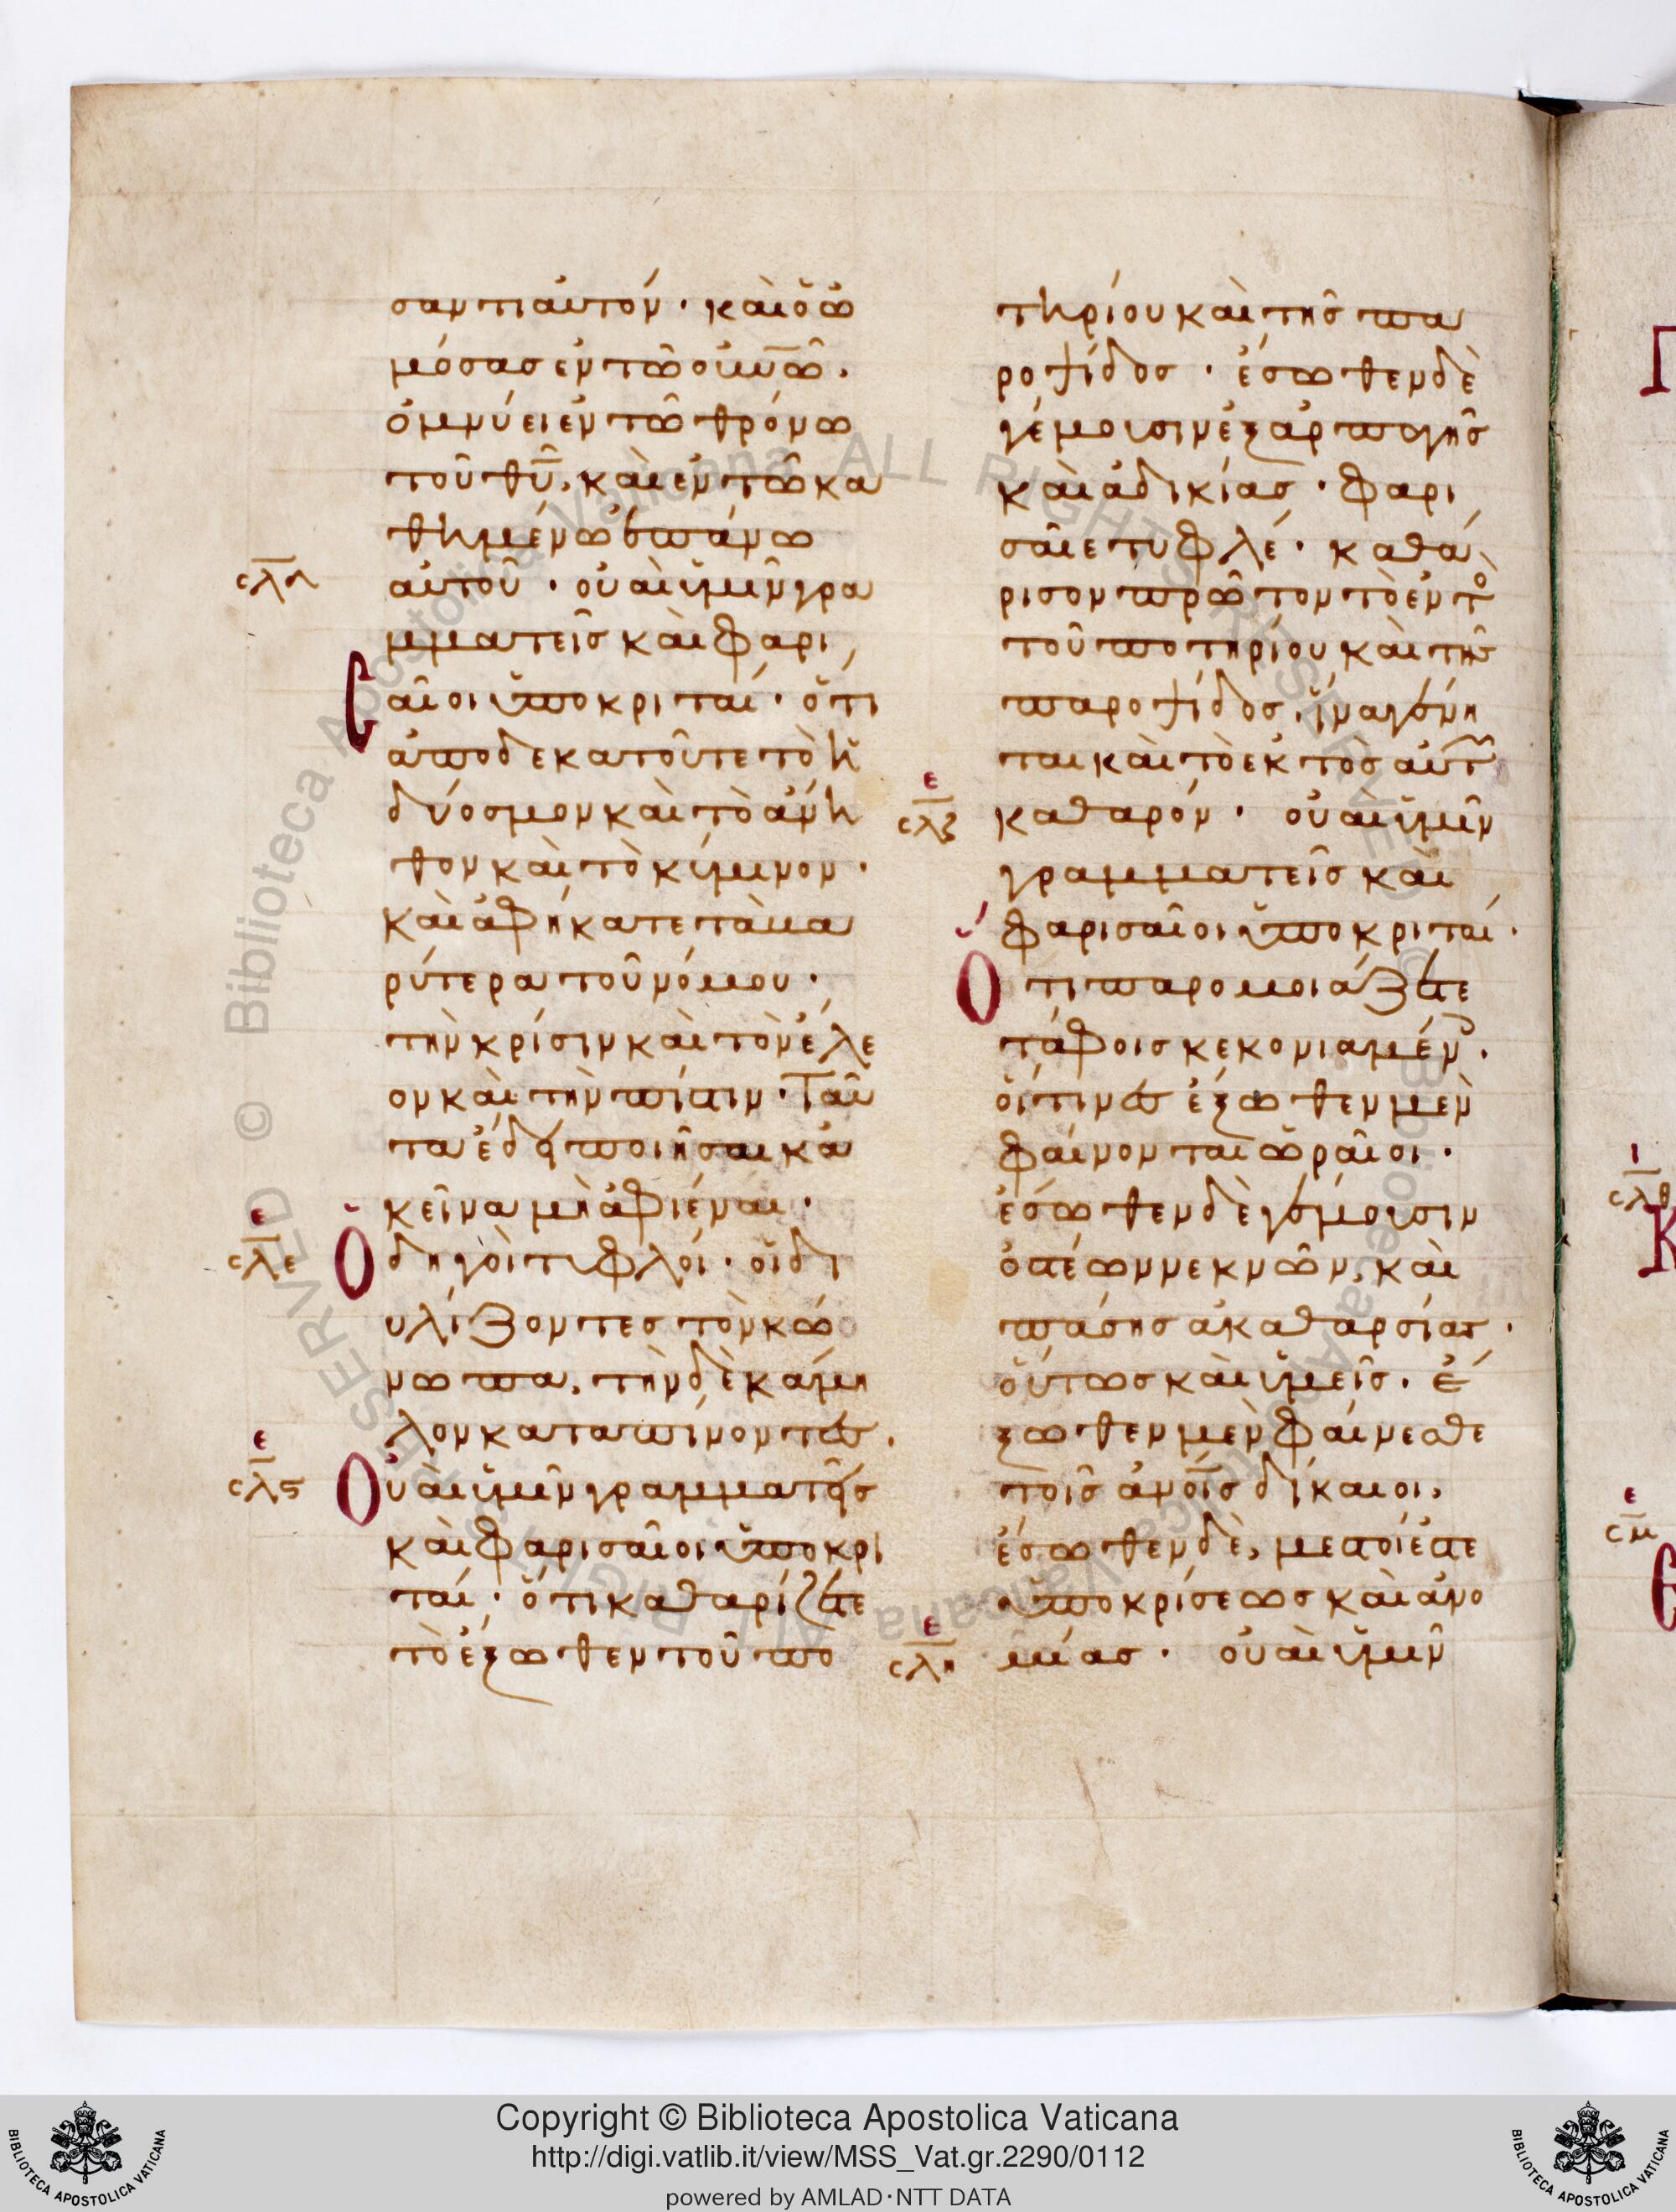 σαντι αὐτόν· καὶ ὁ ὀ
μόσας ἐν τῶ οὐνῶ·
ὀμνύει ἐν τῶ θρόνω
τοῦ θυ, καὶ ἐν τῶ κα
θημένω ἐπάνω
σλδ
αὐτοῦ· οὐαὶ ὑμῖν γρα
μματεῖς καὶ φαρι
σαῖοι ὑποκριταί· ὅτι
ἀποδεκατοῦτε τὸ ἡ
δύοσμον καὶ τὸ ἄνη
θον καὶ τὸ κύμινον·
καὶ ἀφήκατε τὰ βα
ρύτερα τοῦ νόμου·
τὴν κρίσιν καὶ τὸν ἔλε
ον καὶ τὴν πίστιν· Ταῦ
τα ἔδει ποιῆσαι κἀ
κεῖνα μὴ ἀφιέναι·
ε
σλε
Ὁδηγοὶ τυφλοί· οἱ δι
υλίζοντες τὸν κώ
νωπα, τὴν δὲ κάμη
λον καταπίνοντες.
ε
σλς
Οὐαὶ ὑμῖν γραμματεῖς
καὶ φαρισαῖοι ὑποκρι
ταί· ὅτι καθαρίζετε
τὸ ἔξωθεν τοῦ πο
τηρίου καὶ τῆς πα
ροψίδος· ἔσωθεν δὲ
γέμουσιν ἐξ ἁρπαγῆς
καὶ ἀδικίας· φαρι
σαῖε τυφλέ· καθά
ρισον πρῶτον τὸ ἐντο
τοῦ ποτηρίου καὶ τῆς
παροψίδος, ἵνα γένη
ται καὶ τὸ ἐκτὸς αὐτ
ε
σλζ
καθαρόν· οὐαὶ ὑμῖν
γραμματεῖς καὶ
φαρισαῖοι ὑποκριταί·
Ὅτι παρομοιάζετε
τάφοις κεκονιαμέν·
οἵτινες ἔξωθεν μὲν
φαίνονται ὡραῖοι·
ἔσωθεν δὲ γέμουσιν
ὀστέων νεκνῶν, καὶ
πάσης ἀκαθαρσίας·
οὕτως καὶ ὑμεῖς· ἔ
ξωθεν μὲν φαίνεσθε
τοῖς ἀνοις δίκαιοι,
ἔσωθεν δὲ, μεστοί ἐστε
ὑποκρίσεως καὶ ἀνο
ε
σλη
μίας· οὐαὶ ὑμῖν
Copyright © Biblioteca Apostolica Vaticana
http://digi.vatlib.it/view/MSS_Vat.gr.2290/0112
powered by AMLAD·NTT DATA
BIBLIOTECA APOSTOLICA VATICANA
BIBLIOTECA APOSTOLICA VATICANA